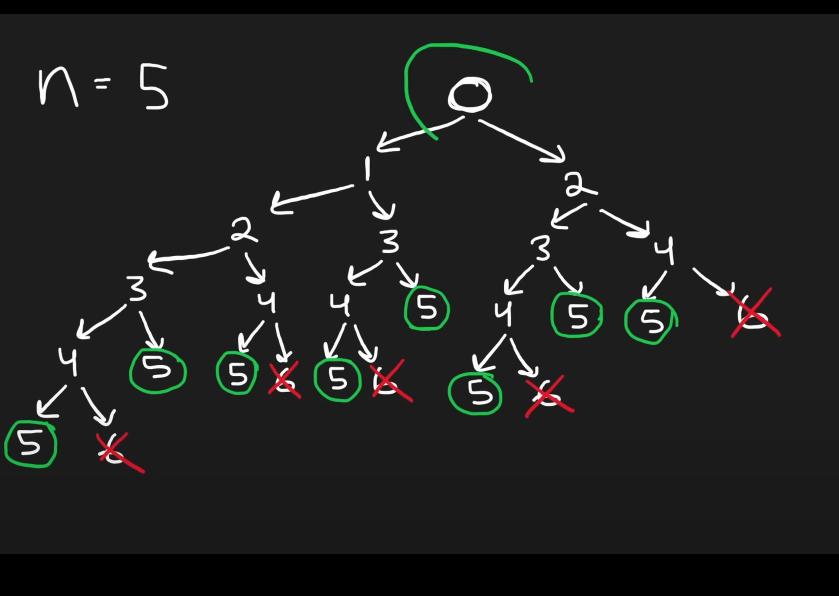 n = 5
0
1
2
2
3
3
4
3
4
4
5
4
5
5
6
4
5
5
6
5
6
5
6
5
6